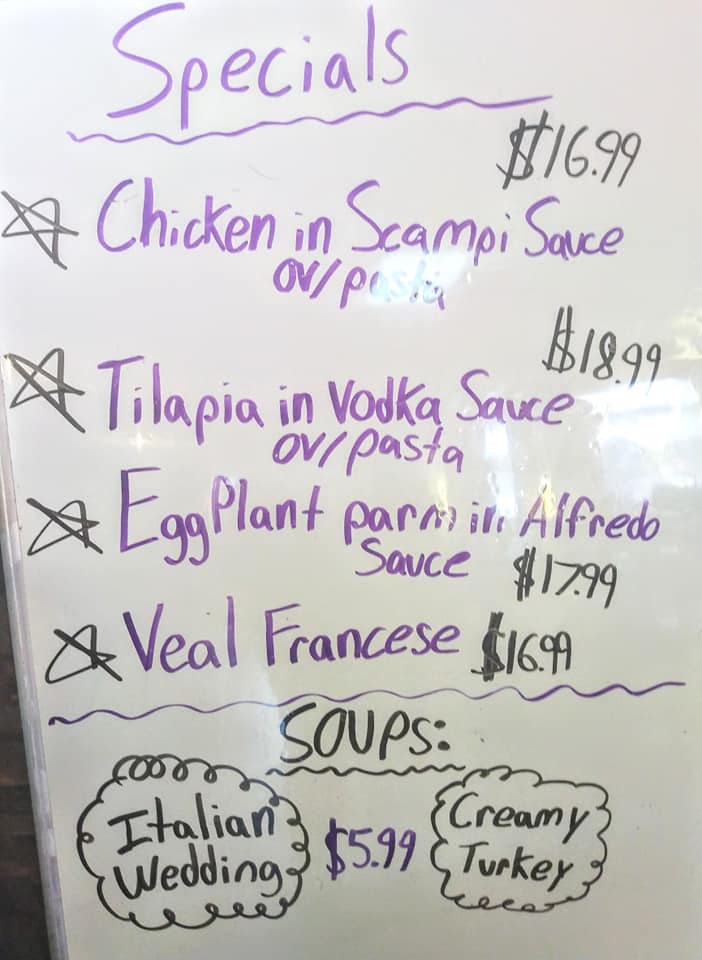 Specials
$16.99
Chicken in Scampi Sauce
ov/pasta
$18.99
Tilapia in Vodka Sauce
ov/pasta
EggPlant parm in Alfredo
Sauce $17.99
Veal Francese $16.99
SOUPS:
Italian
Wedding
$5.99
Creamy
Turkey